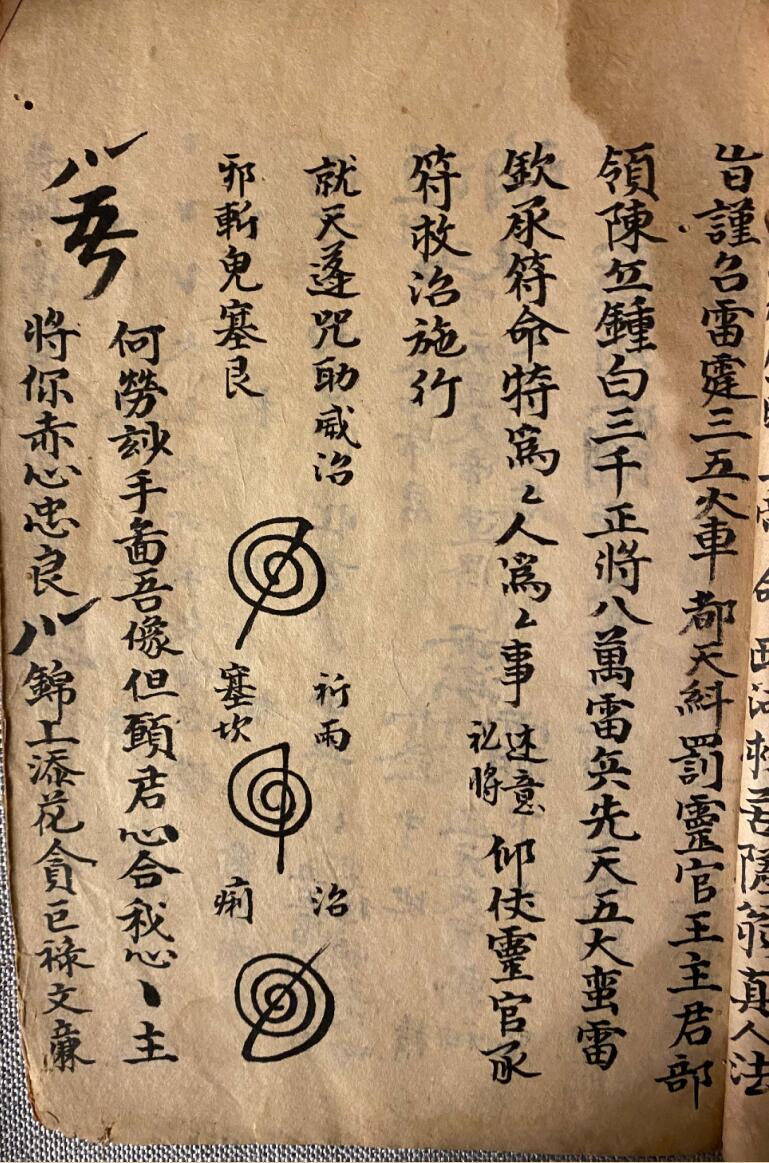 旨謹召雷霆三五火車都天糾罰靈官王主君部
領陳苙鍾白三千正將八萬雷兵先天五大蛮雷
欽承符命特爲〻人爲〻事 述意 訟將 仰仗靈官承
符救治施行
就天蓬咒助威治 祈雨 治
邪斬鬼塞艮 塞坎 痢
八吾
何勞玅手畵吾像但願君心合我心丶主
將你赤心忠良八錦上添花貪巨祿文廉